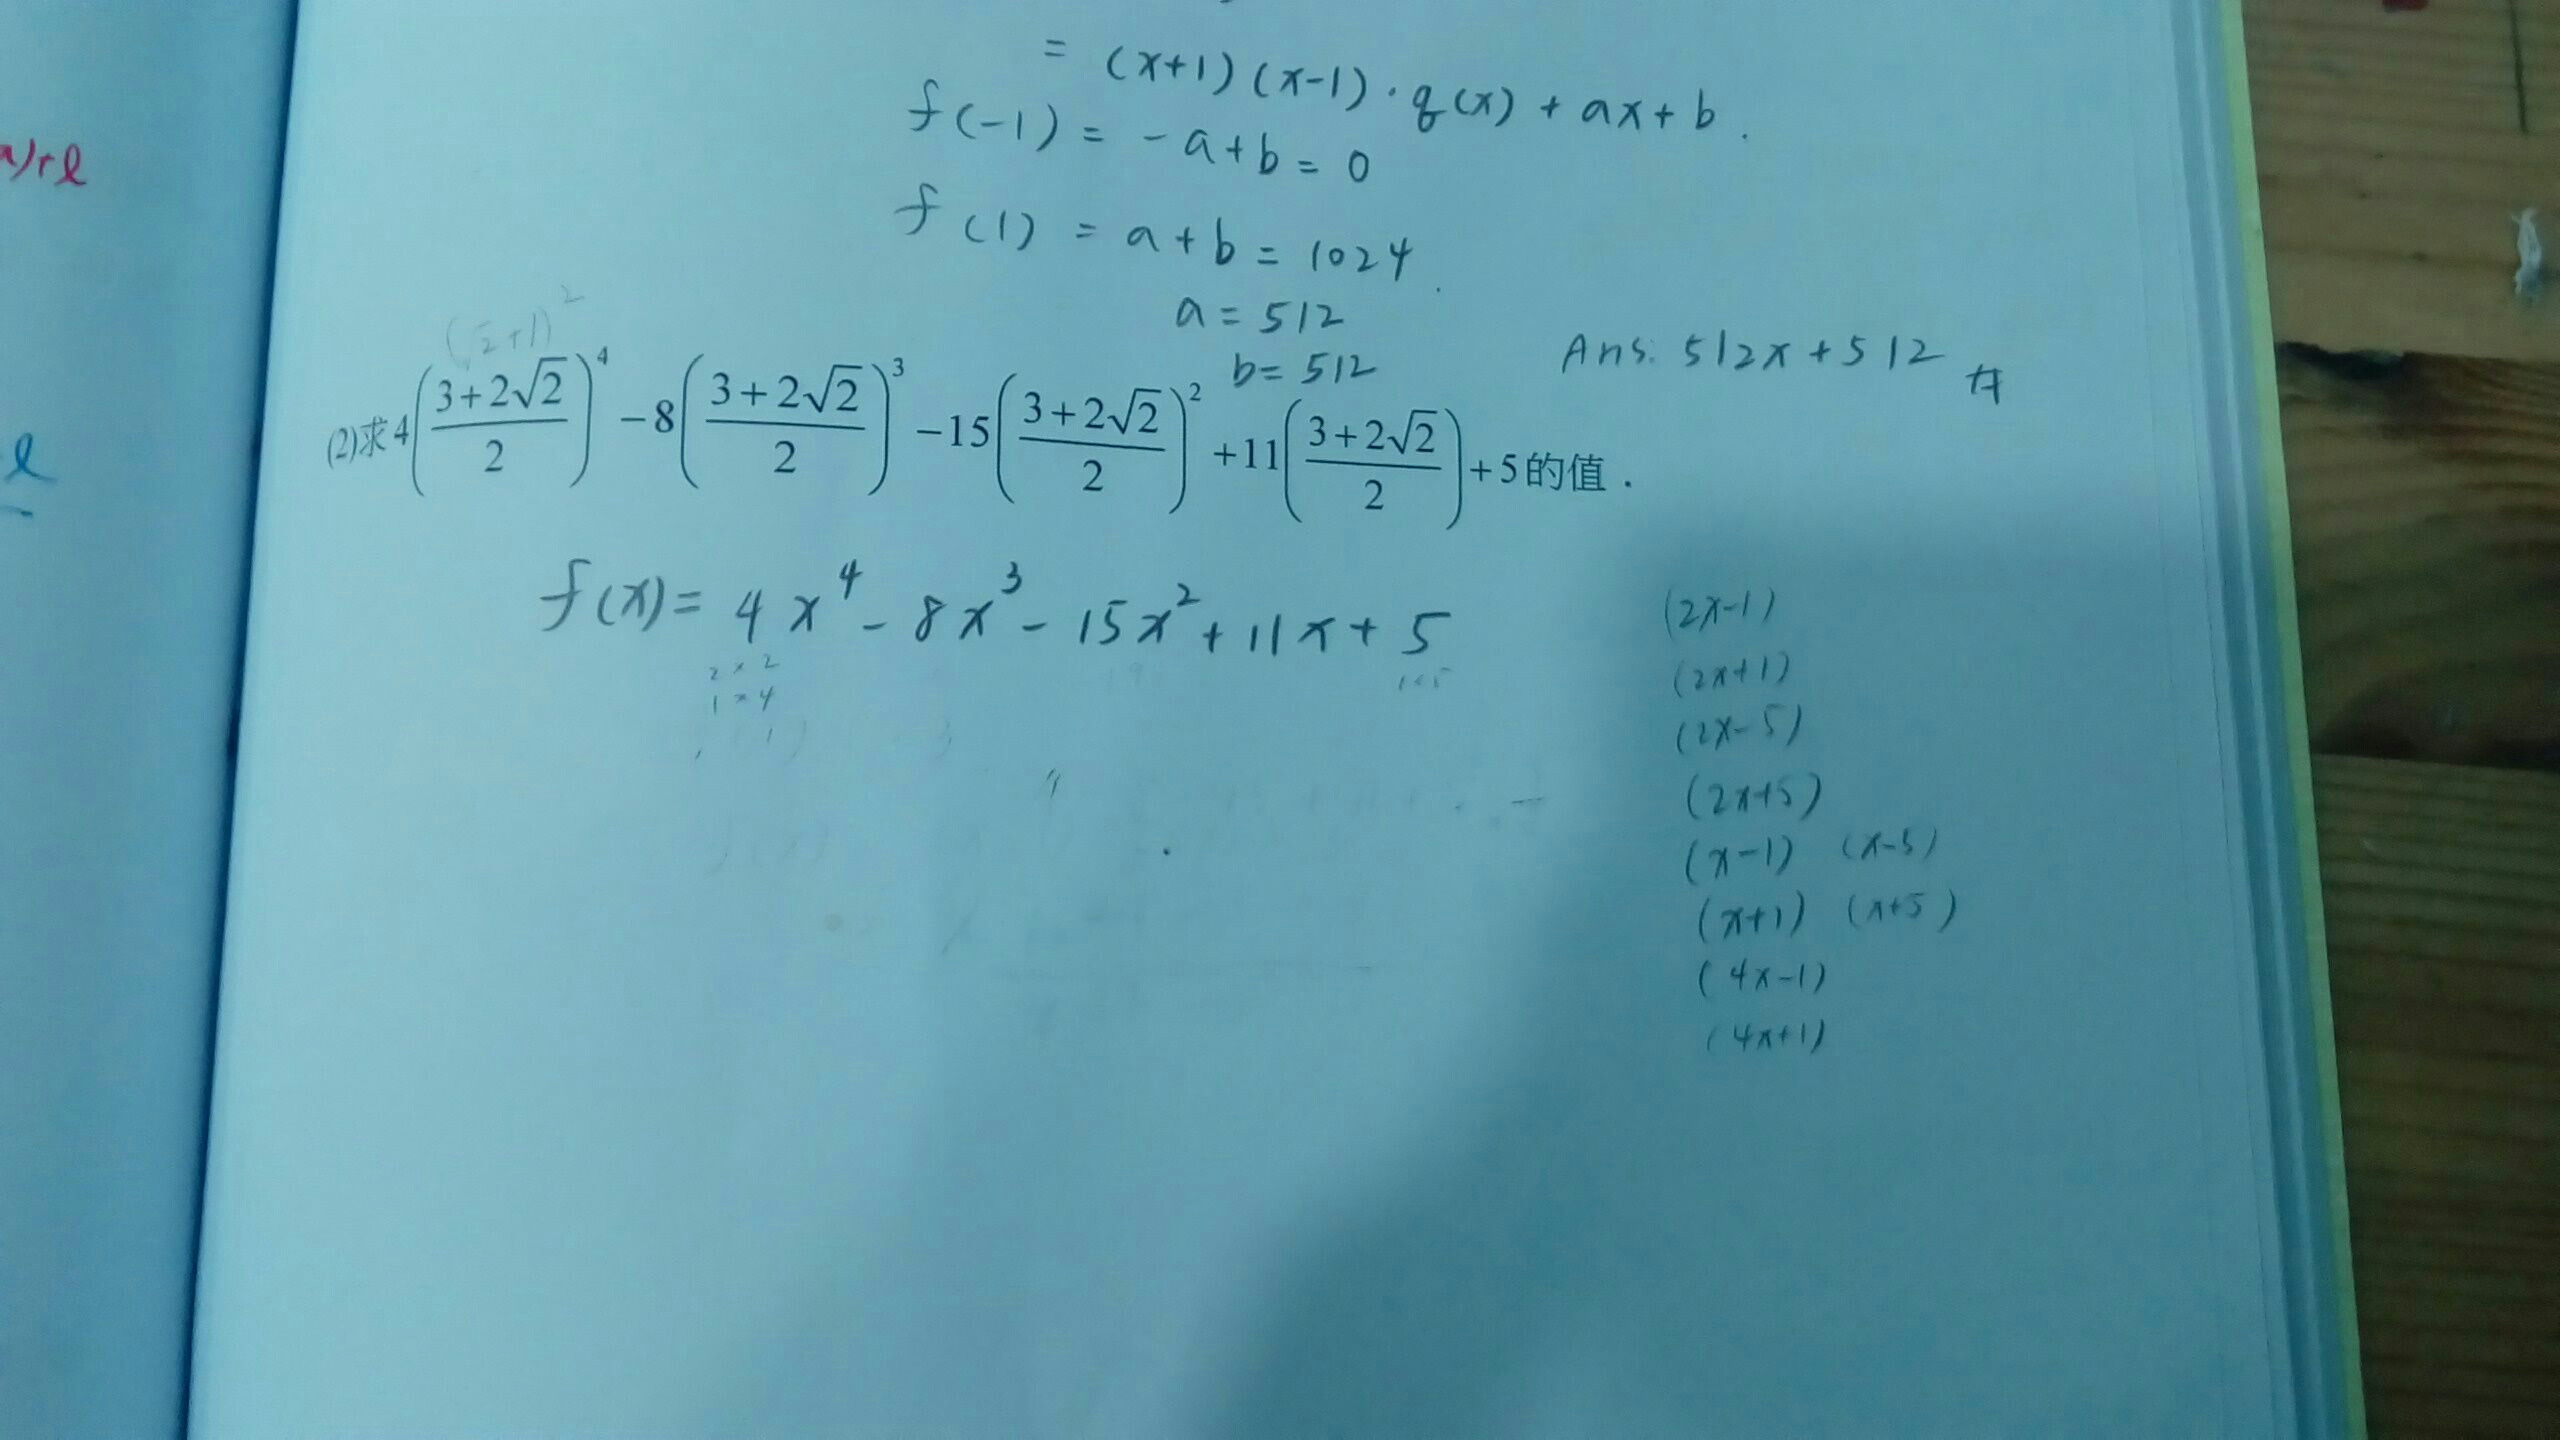 = (x+1)(x-1)·q(x)+ax+b.
f(-1) = -a+b = 0
f(1) = a+b = 1024.
a = 512
b = 512
Ans: 512x+512
(√2+1)²
(2)求4((3+2√2)/2)⁴-8((3+2√2)/2)³-15((3+2√2)/2)²+11((3+2√2)/2)+5的值.
f(x) = 4x⁴-8x³-15x²+11x+5
2×2
1×4
(2x-1)
(2x+1)
(2x-5)
(2x+5)
(x-1) (x-5)
(x+1) (x+5)
(4x-1)
(4x+1)